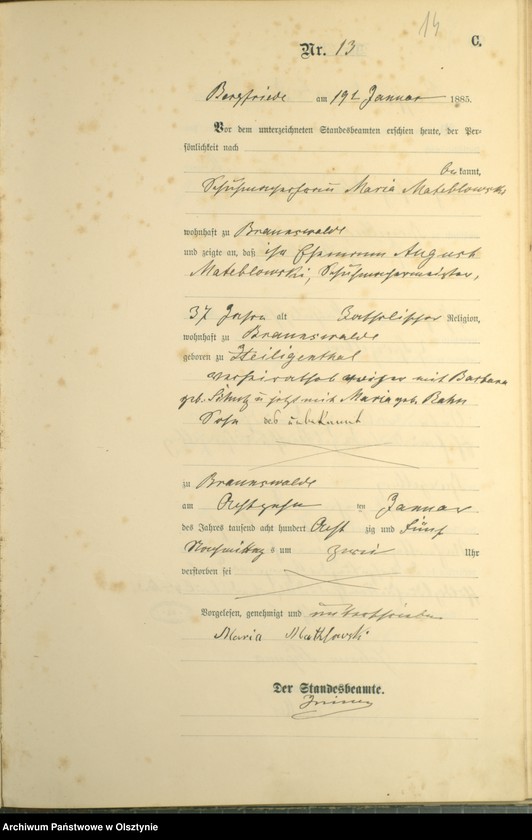 14
C.
Nr. 13
Bergfriede am 19t Januar 1885.
Vor dem unterzeichneten Standesbeamten erschien heute, der Per-
sönlichkeit nach
be kannt,
Schuhmacherfrau Maria Mateblowski
wohnhaft zu Braunswalde
und zeigte an, daß ihr Ehemann August
Mateblowski, Schuhmachermeister,
37 Jahre alt katholischer Religion,
wohnhaft zu Braunswalde
geboren zu Heiligenthal
verheirathet mit Barbara
geb. u jetzt mit Maria geb. Rahn
Sohn des unbekannt
zu Braunswalde
am Achtzehn ten Januar
des Jahres tausend acht hundert Acht zig und Fünf
Nachmittag s um zwei Uhr
verstorben sei
Vorgelesen, genehmigt und unterschrieben
Maria
Der Standesbeamte.
Archiwum Państwowe w Olsztynie